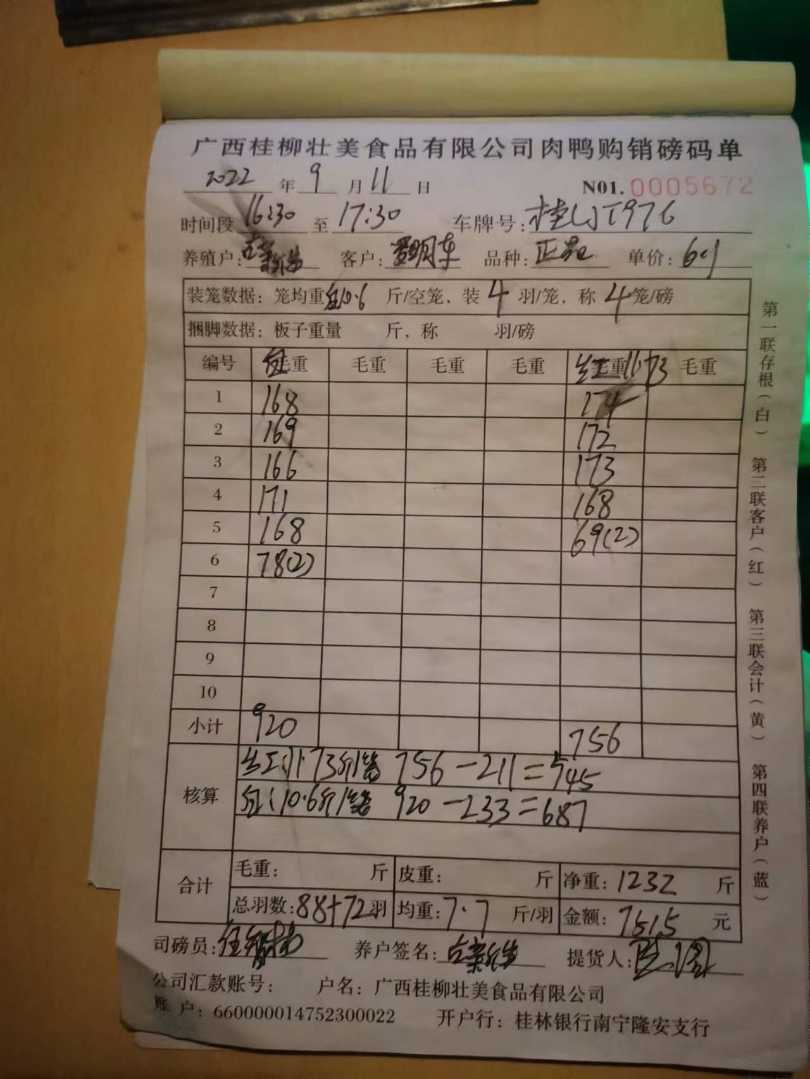 广西桂柳壮美食品有限公司肉鸭购销磅码单
2022 年 9 月 11 日 N01. 0005672
时间段 16:30 至 17:30 车牌号: 桂 T976
养殖户: 客户: 明东 品种: 正品 单价: 6.1
装笼数据: 笼均重 红10.6 斤/空笼, 装 4 羽/笼, 称 4 笼/磅
捆脚数据: 板子重量 斤, 称 羽/磅
编号 红毛重 毛重 毛重 毛重 重 11.73 毛重
1 168 174
2 169 172
3 166 173
4 171 168
5 168 69(2)
6 78(2)
7
8
9
10
小计 920 756
核算 11.73斤/笼 756-211=545
红:10.6斤/笼 920-233=687
合计 毛重: 斤 皮重: 斤 净重: 1232 斤
总羽数: 88+72 羽 均重: 7.7 斤/羽 金额: 7515 元
司磅员: 养户签名: 提货人:
公司汇款账号: 户名: 广西桂柳壮美食品有限公司
账 户: 660000014752300022 开户行: 桂林银行南宁隆安支行
第一联存根(白) 第二联客户(红) 第三联会计(黄) 第四联养户(蓝)